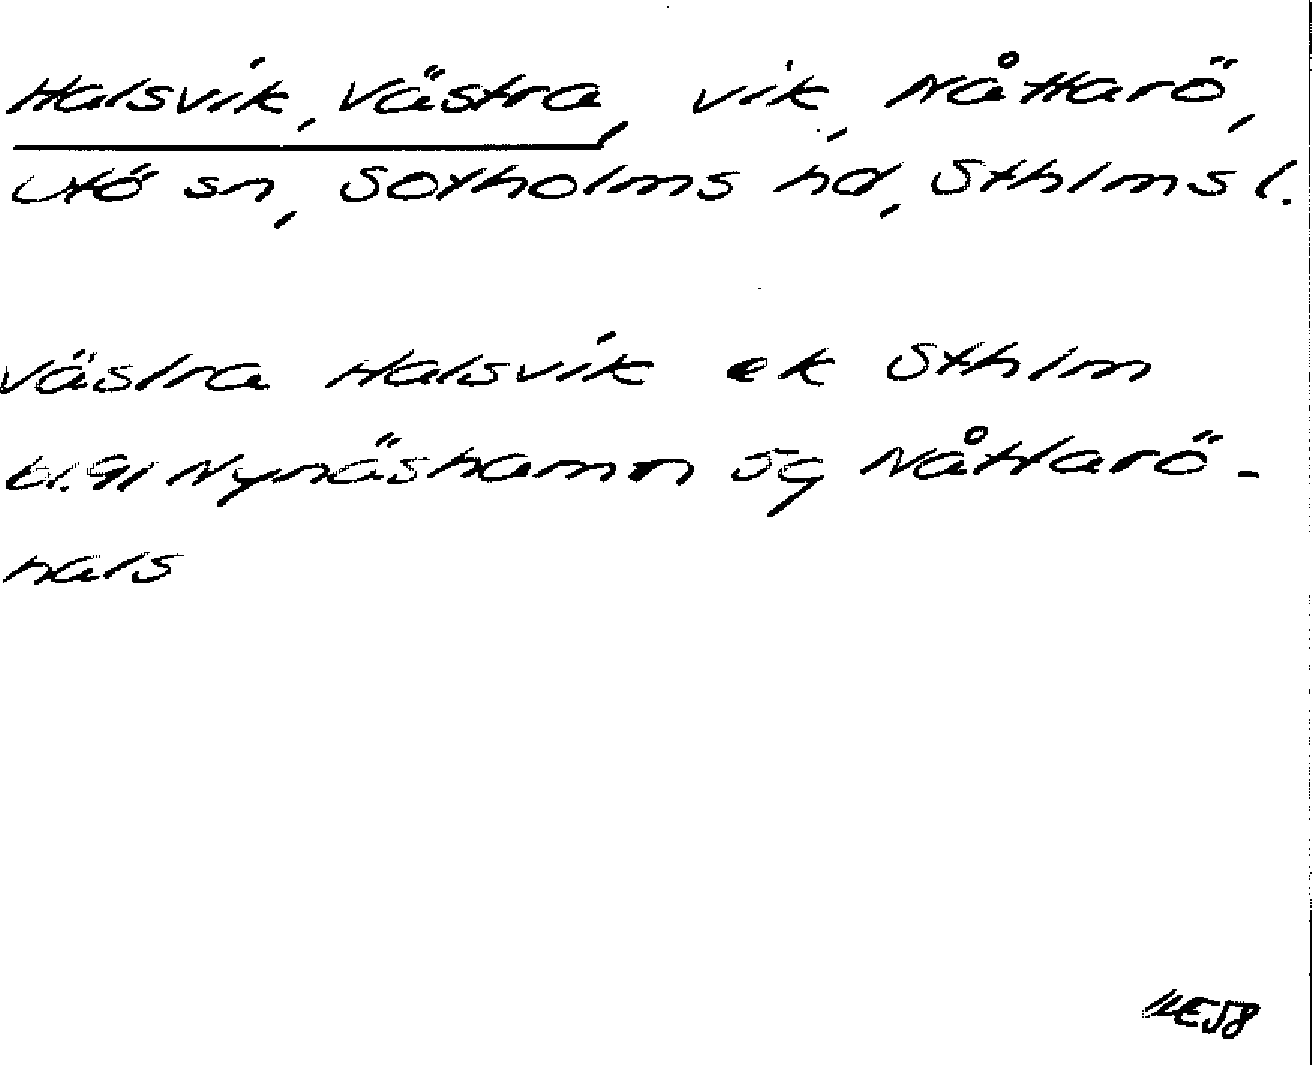 Halsvik, Västra, vik, Nåttarö,
Utö sn, Sotholms hd, Sthlms l.
Västra Halsvik ek Sthlm
bl. 91 Nynäshamn 5g Nåttarö-
hals